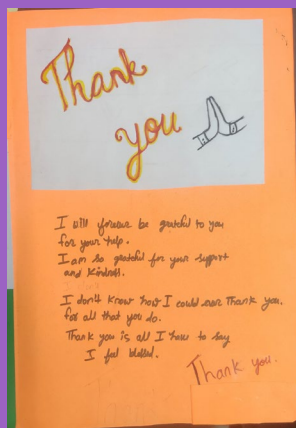 Thank
you
I will forever be grateful to you
for your help.
I am so grateful for your support
and kindness.
I don't know how I could ever Thank you.
for all that you do.
Thank you is all I have to say
I feel blessed.
Thank you.